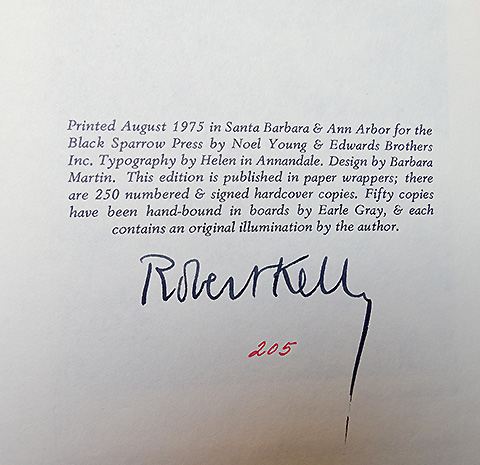 Printed August 1975 in Santa Barbara & Ann Arbor for the
Black Sparrow Press by Noel Young & Edwards Brothers
Inc. Typography by Helen in Annandale. Design by Barbara
Martin. This edition is published in paper wrappers; there
are 250 numbered & signed hardcover copies. Fifty copies
have been hand-bound in boards by Earle Gray, & each
contains an original illumination by the author.
Robert Kelly
205